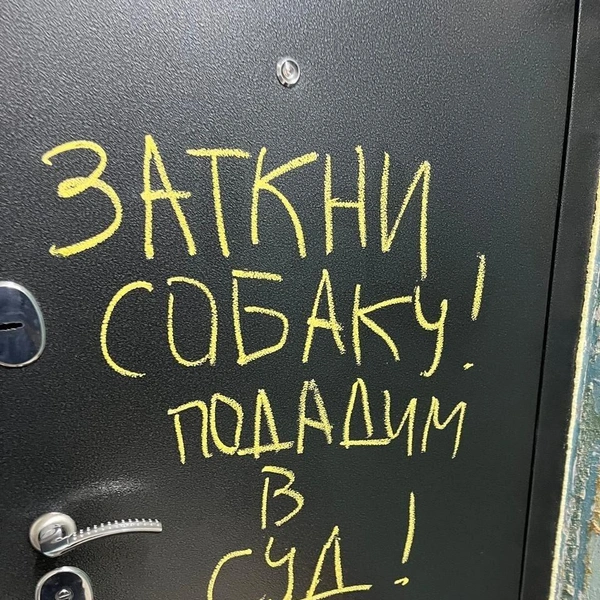 ЗАТКНИ
СОБАКУ!
ПОДАДИМ
В
СУД!